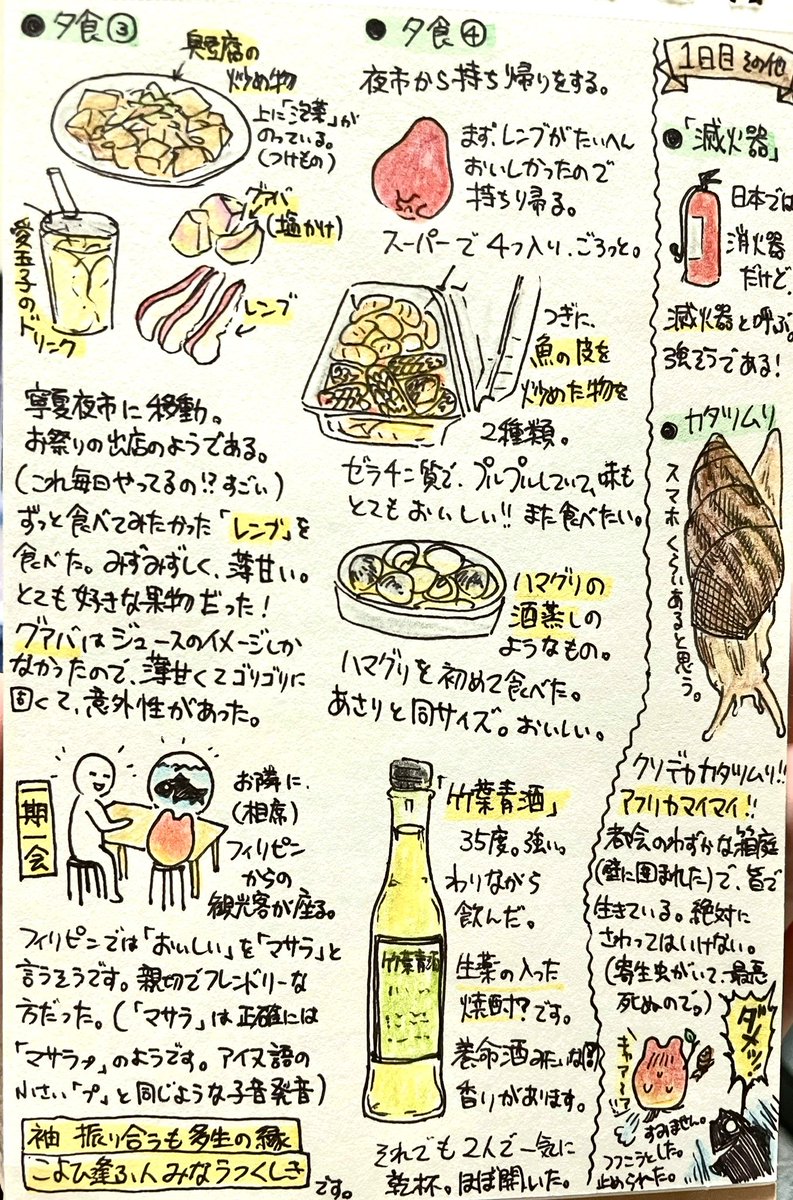 ● 夕食③
臭豆腐の
炒め物
上に「泡菜」が
のっている。
(つけもの)
グァバ
(塩かけ)
愛玉子の
ドリンク
レンブ
寧夏夜市に移動。
お祭りの出店のようである。
(これ毎日やってるの!? すごい)
ずっと食べてみたかった「レンブ」を
食べた。みずみずしく、薄甘い。
とても好きな果物だった!
グァバはジュースのイメージしか
なかったので、薄甘くてゴリゴリに
固くて、意外性があった。
一期一会
お隣に、
(相席)
フィリピン
からの
観光客が座る。
フィリピンでは「おいしい」を「マサラ」と
言うそうです。親切でフレンドリーな
方だった。(「マサラ」は正確には
「マサラㇷ゚」のようです。アイヌ語の
小さい「プ」と同じような子音発音)
袖 振り合うも多生の縁
こよひ逢ふ人みなうつくしき
です。
● 夕食④
夜市から持ち帰りをする。
まず、レンブがたいへん
おいしかったので
持ち帰る。
スーパーで4つ入り、ごろっと。
つぎに、
魚の皮を
炒めた物を
2種類。
ゼラチン質で、プルプルしていて、味も
とてもおいしい!! また食べたい。
ハマグリの
酒蒸しの
ようなもの。
ハマグリを初めて食べた。
あさりと同サイズ。おいしい。
「竹葉青酒」
35度。強い。
わりながら
飲んだ。
竹葉青酒
生薬の入った
焼酎?です。
養命酒みたいな
香りがあります。
それでも2人で一気に
乾杯。ほぼ開いた。
1日目 その他
● 「滅火器」
日本では
消火器
だけど、
滅火器と呼ぶ。
強そうである!
● カタツムリ
スマホくらいあると思う。
クソデカカタツムリ!!
アフリカマイマイ!!
都会のわずかな箱庭
(壁に囲まれた)で、皆で
生きている。絶対に
さわってはいけない。
(寄生虫がいて、最悪
死ぬので。)
ダメッ!!
キャアーッ
すみません。
つつこうとした。
止められた。